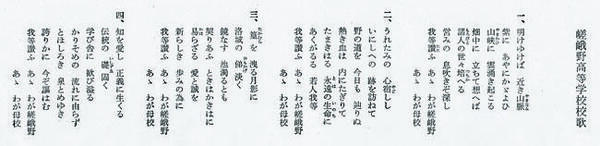 嵯峨野高等学校校歌
一、明けゆけば 近き山脈
紫に あやにかゞよひ
山峡に 雲湧き起こる
畑中に 立ちて想へば
諸人の世々培へる
営みの 息吹き ぞ深し
我等讃ふ あゝ わが嵯峨野
あゝ わが母校
二、うれたみの 心宿しし
いにしへの 跡を訪ねて
野の道を 今日も 辿りぬ
熱き血は 内にたぎりて
たまきはる 永遠の生命に
あくがるる 若人我等
我等讃ふ あゝ わが嵯峨野
あゝ わが母校
三、篁を 洩る月影に
洛城の 俤淡く
鏡なす 池濁るとも
契りあふ ときはかきはに
易らざる 愛と誠を
新らしき 歩みの為に
我等讃ふ あゝ わが嵯峨野
あゝ わが母校
四、知を愛し 正義に生くる
伝統の 礎固く
学び舎に 歓び溢る
かりそめの 流れに由らず
とほしろき 泉とめゆき
誇りかに 今ぞ謳はむ
我等讃ふ あゝ わが嵯峨野
あゝ わが母校